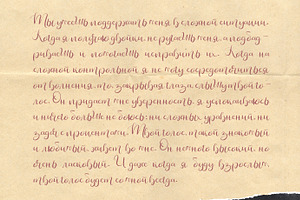 Ты умеешь поддержать меня в сложной ситуации.
Когда я получаю двойки, не ругаешь меня, а подбад-
риваешь и помогаешь исправить их. Когда на
сложной контрольной я не могу сосредоточиться
от волнения, то, закрывая глаза, слышу твой го-
лос. Он придаёт мне уверенность, я успокаиваюсь
и ничего больше не боюсь: ни сложных уравнений, ни
задач с процентами. Твой голос, такой знакомый
и любимый, живёт во мне. Он немного высокий, но
очень ласковый. И даже когда я буду взрослым,
твой голос будет со мной всегда.